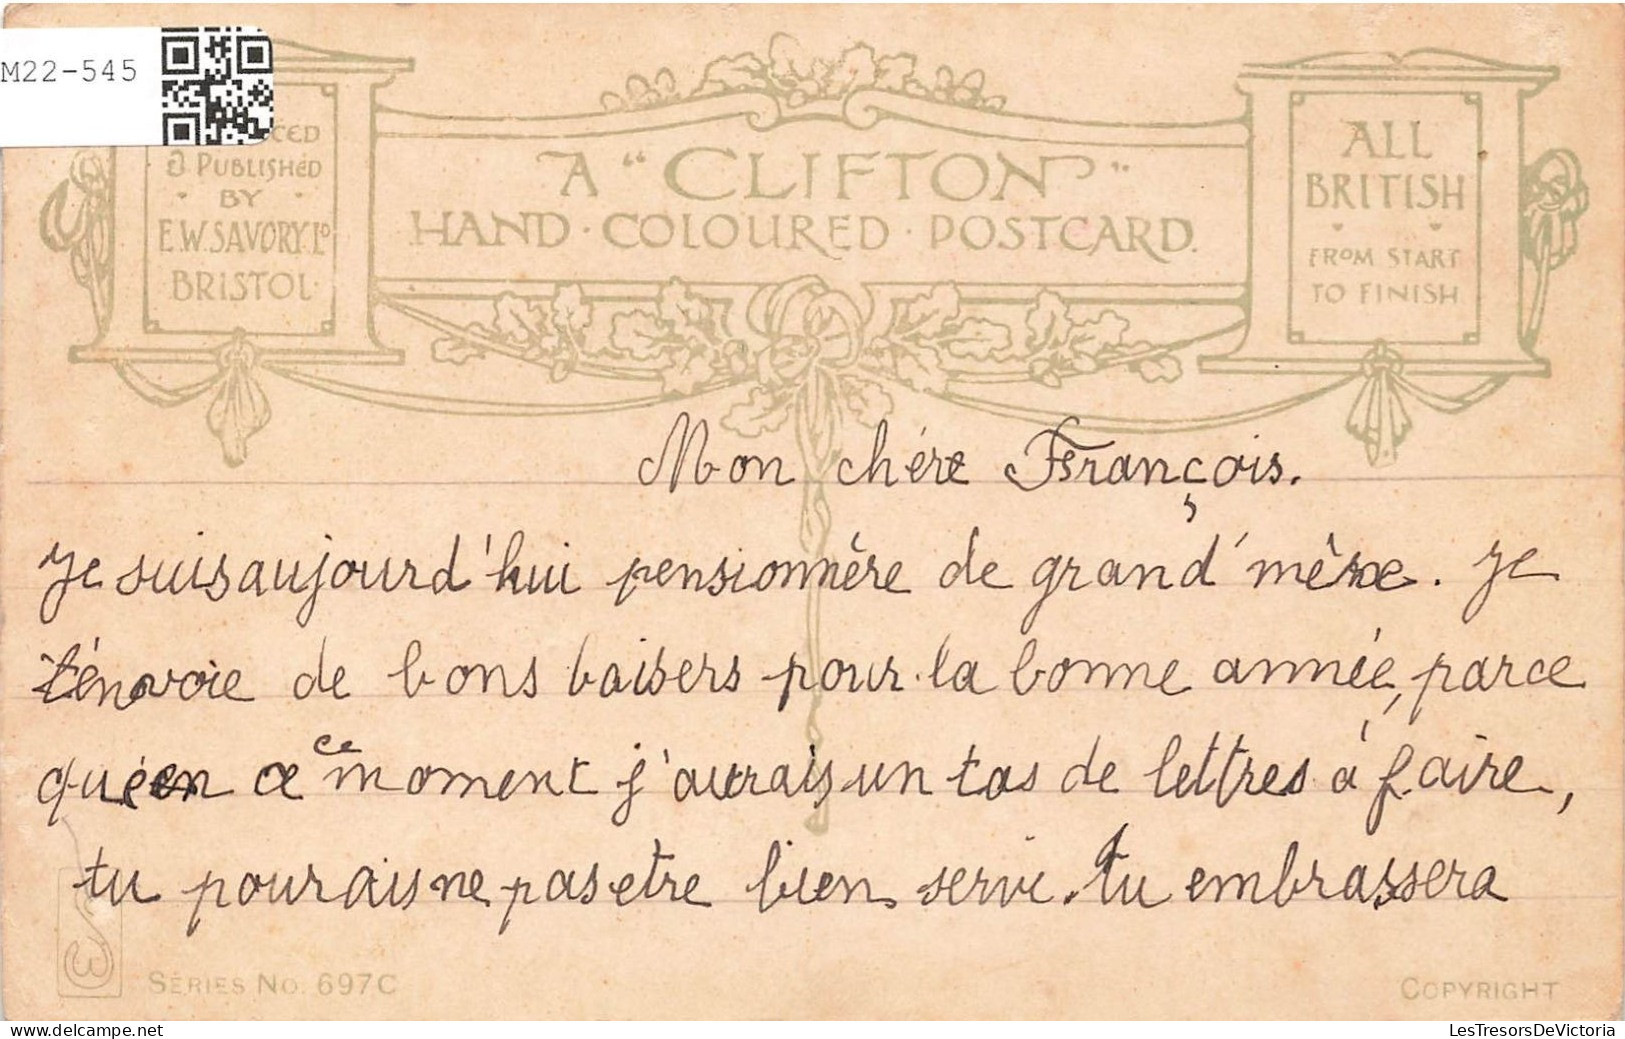 M22-545
& PUBLISHED
BY
E.W. SAVORY. LD
BRISTOL
A "CLIFTON"
HAND · COLOURED · POSTCARD.
ALL
BRITISH
FROM START
TO FINISH
Mon chére François.
Je suis aujourd'hui pensionnére de grand'mére. Je
t'énvoie de bons baisers pour la bonne année, parce
qu'en ce ce moment j'aurais un tas de lettres à faire,
tu pourais ne pas etre bien servi. tu embrassera
SERIES NO. 697C
COPYRIGHT
LesTresorsDeVictoria.com